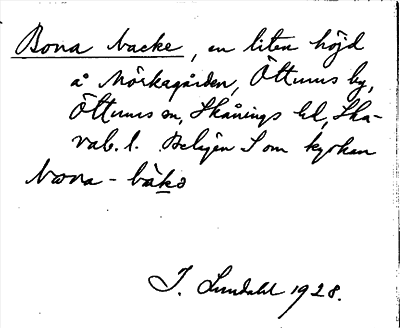 Bona backe, en liten höjd
å Mörkagården, Öttums by,
Öttums sn, Skånings hd, Ska-
rab. l. Belägen S om kyrkan
bona - bäkə
J. Lundahl 1928.